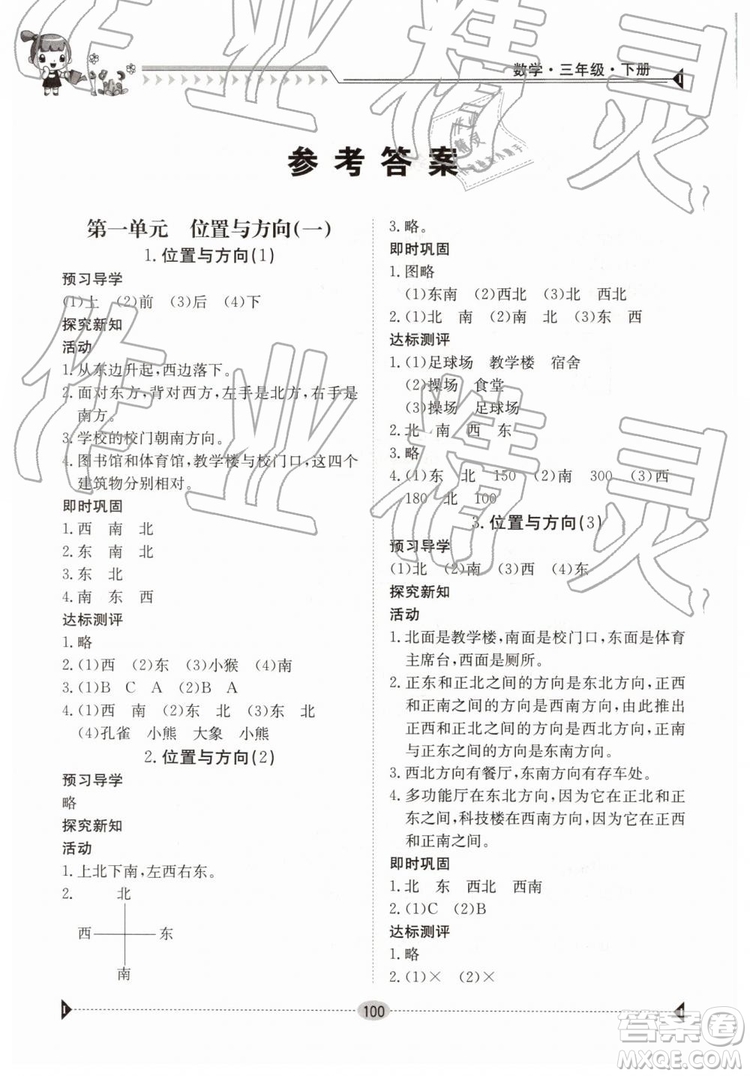 数学·三年级·下册
参考答案
第一单元 位置与方向(一)
1.位置与方向(1)
预习导学
(1)上 (2)前 (3)后 (4)下
探究新知
活动
1.从东边升起,西边落下。
2.面对东方,背对西方,左手是北方,右手是
南方。
3.学校的校门朝南方向。
4.图书馆和体育馆,教学楼与校门口,这四个
建筑物分别相对。
即时巩固
1.西 南 北
2.东 南 北
3.东 北
4.南 东 西
达标测评
1.略
2.(1)西 (2)东 (3)小猴 (4)南
3.(1)B C A (2)B (3)A
4.(1)西 北 (2)东 南 (3)东 北
(4)孔雀 小熊 大象 小熊
2.位置与方向(2)
预习导学
略
探究新知
活动
1.上北下南,左西右东。
2. 北
西 东
南
3.略。
即时巩固
1.图略
(1)东南 (2)西北 (3)西北
2.(1)北 南 (2)南 北 (3)东 西
达标测评
1.(1)足球场 教学楼 宿舍
(2)操场 食堂
(3)操场 足球场
2.北 南 西 东
3.略
4.(1)西 北 150 (2)南 300 (3)西
180 北 100
3.位置与方向(3)
预习导学
(1)北 (2)西 (3)南 (4)东
探究新知
活动
1.北面是教学楼,南面是校门口,东面是体育
主席台,西面是厕所。
2.正东和正北之间的方向是东北方向,正西
和正北之间的方向是西北方向,由此推出
正东和正南之间的方向是东南方向,正西
和正南之间的方向是西南方向。
3.西北方向有餐厅,东南方向有存车处。
4.多功能厅在东北方向,因为它在正北和正
东之间,科技楼在西南方向,因为它在正西
和正南之间。
即时巩固
1.北 东 西北 西南
2.(1)C (2)B
达标测评
1.略
2.(1)× (2)×
100
作业精灵
答案圈
MXQE.COM